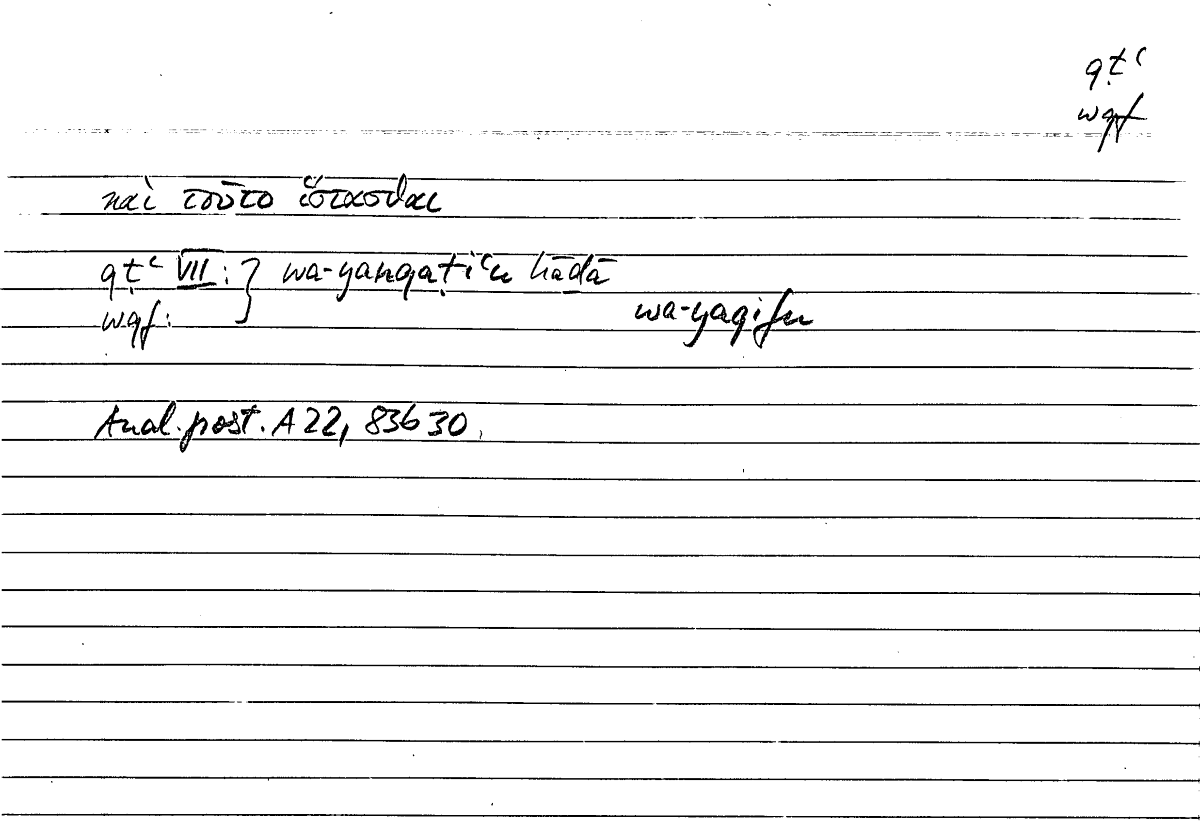 qṭʿ
wqf
καὶ τοῦτο ἵστασθαι
qṭʿ VII: } wa-yanqaṭiʿu hāḏā
wqf: wa-yaqifu
Anal. post. A 22, 83b30.